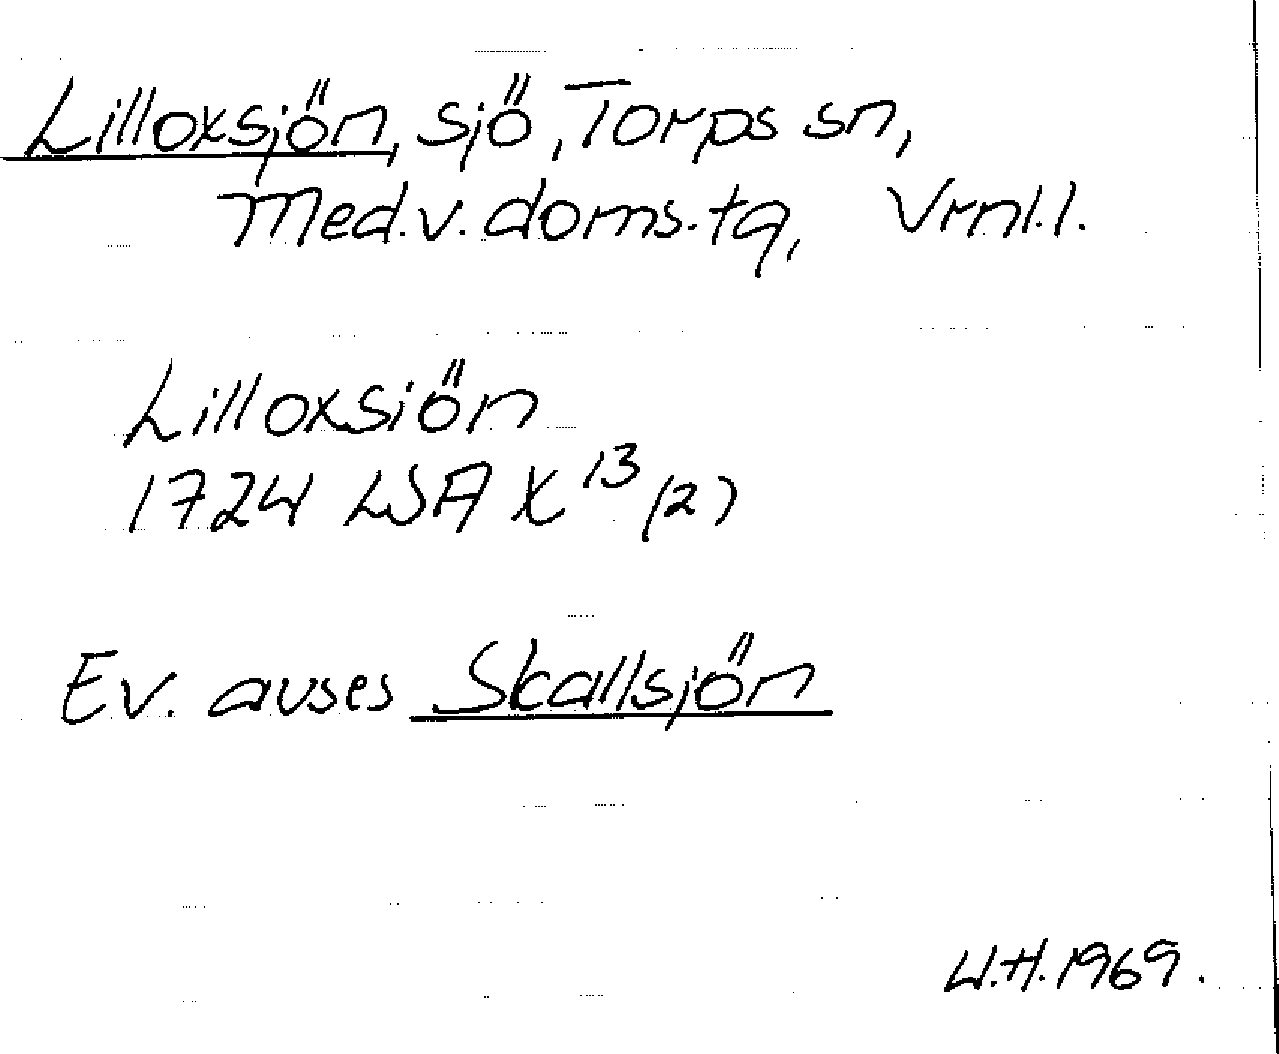 Lilloxsjön, sjö, Torps sn,
Med.v.doms.tg, Vrnl.l.
Lilloxsiön
1724 LSA X 13 (2)
Ev. avses Skallsjön
W.H. 1969.